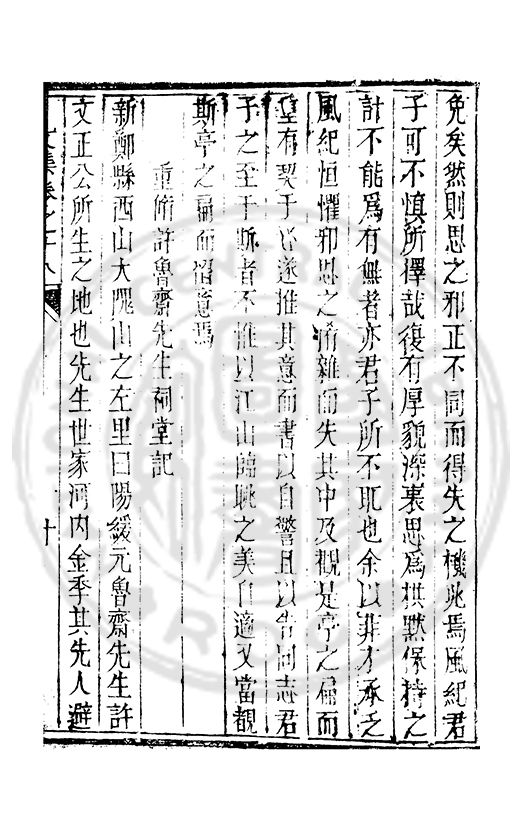 免矣然則思之邪正不同而得失之機此焉風紀君
子可不慎所擇哉復有厚貌深裏思爲拱默保持之
計不能爲有無者亦君子所不取也余以非才承乏
風紀恒懼邪思之淆雜而失其中及觀是亭之扁而
有契于心遂推其意而書以自警且以告同志君
子之至于斯者不惟以江山臨眺之美自適又當觀
斯亭之扁而留意焉
重脩許魯齋先生祠堂記
新鄭縣西山大隗山之左里曰陽緩元魯齋先生許
文正公所生之地也先生世家河内金季其先人避
文集卷之十八
十